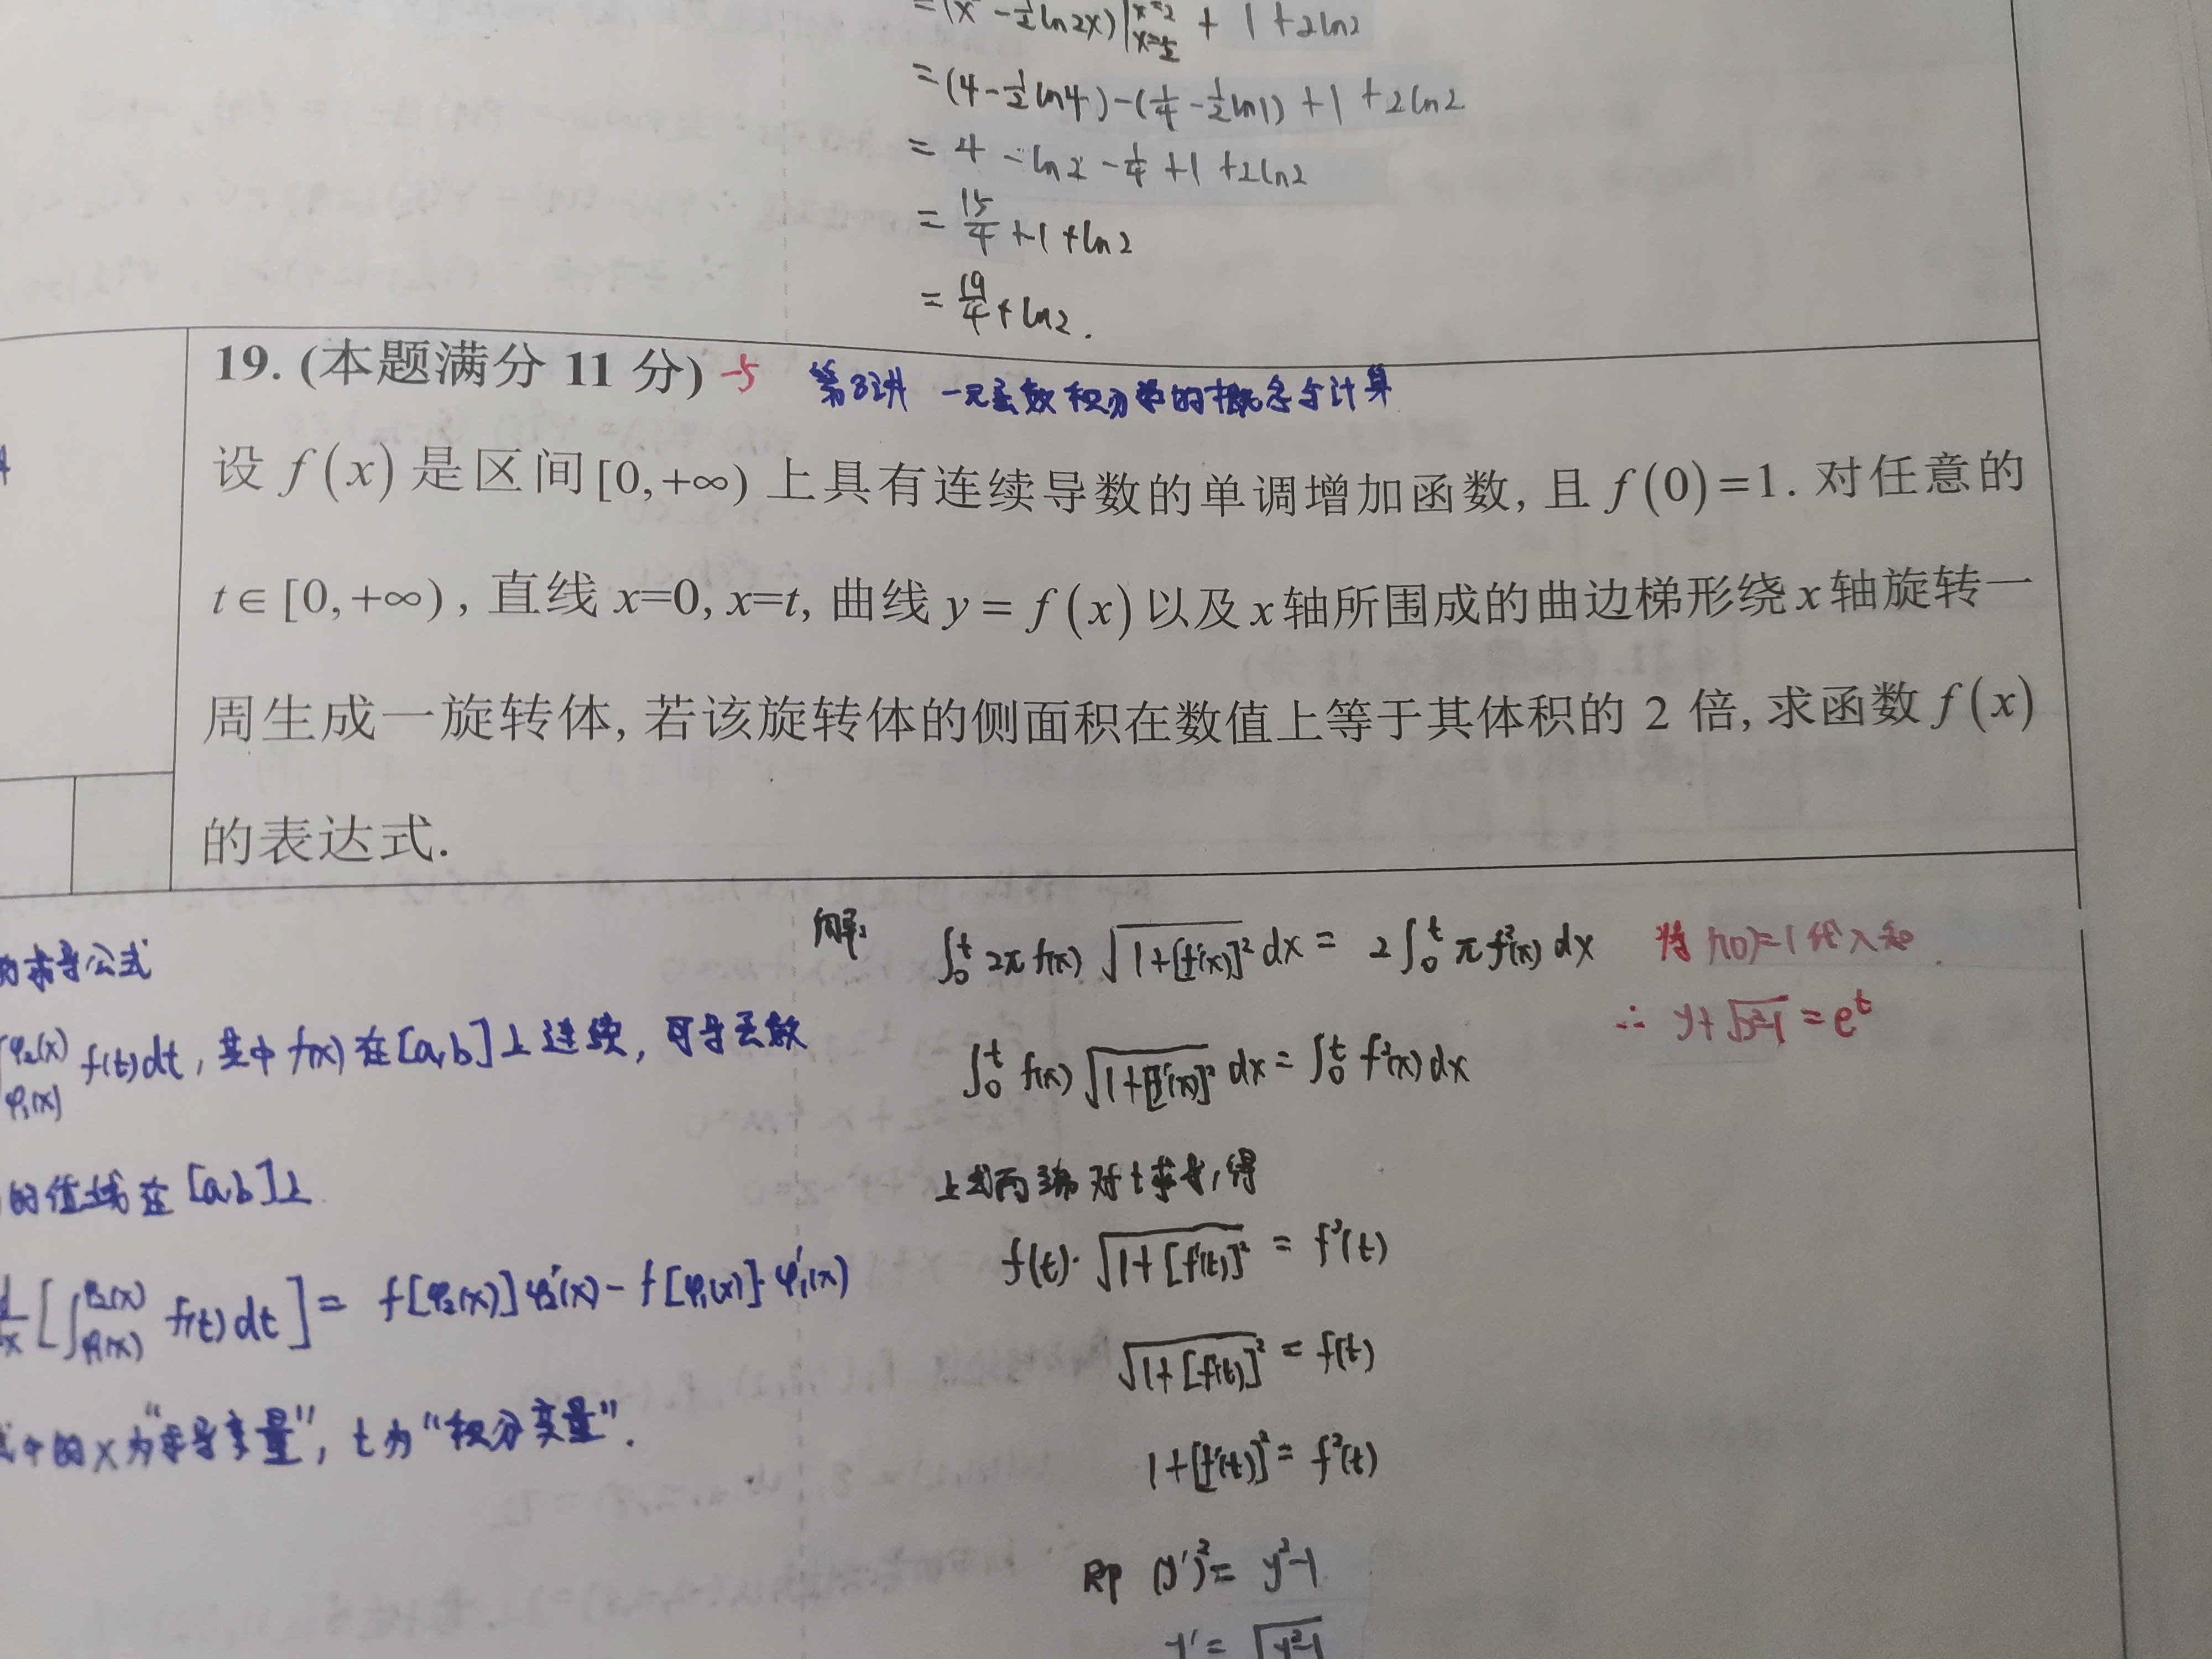 =(x² - ½ln2x)|x=2 x=½ + 1 + 2ln2
=(4-½ln4)-(¼-½ln1)+1+2ln2
= 4 - ln2 - ¼ + 1 + 2ln2
= 15/4 + 1 + ln2
= 19/4 + ln2.
19. (本题满分 11 分) -5 第8讲 一元函数积分学的概念与计算
设 f(x) 是区间[0,+∞) 上具有连续导数的单调增加函数, 且 f(0)=1. 对任意的
t∈[0,+∞), 直线 x=0, x=t, 曲线 y=f(x) 以及 x 轴所围成的曲边梯形绕 x 轴旋转一
周生成一旋转体, 若该旋转体的侧面积在数值上等于其体积的 2 倍, 求函数 f(x)
的表达式.
的求导公式
∫φ₂(x) φ₁(x) f(t)dt, 其中 f(x) 在[a,b]上连续, 可导函数
的值域在[a,b]上
[∫φ₂(x) φ₁(x) f(t)dt] = f[φ₂(x)]φ₂'(x) - f[φ₁(x)]·φ₁'(x)
中的x为“求导变量”, t为“积分变量”.
解: ∫₀ᵗ 2πf(x)√(1+[f'(x)]²) dx = 2∫₀ᵗ πf²(x)dx
∫₀ᵗ f(x)√(1+[f'(x)]²) dx = ∫₀ᵗ f²(x)dx
上式两端对t求导, 得
f(t)·√(1+[f'(t)]²) = f²(t)
√(1+[f'(t)]²) = f(t)
1+[f'(t)]² = f²(t)
即 (y')² = y²-1
y' = √(y²-1)
将 f(0)=1代入知
∴ y+√(y²-1) = eᵗ